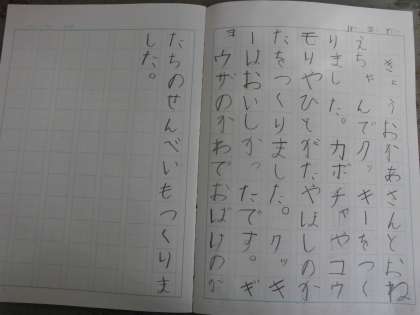 きょうおかあさんとおね
えちゃんでクッキーをつく
りました。カボチャやコウ
モリやひとがたやほしのか
たをつくりました。クッキ
ーはおいしかったです。ギ
ョウザのかわでおばけのか
たちのせんべいもつくりま
した。